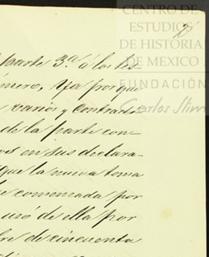 CENTRO DE
ESTUDIOS
DE HISTORIA
DE MEXICO
FUNDACIÓN
Carlos Slim
2
parte 3ª á los tes
número, Ya por que
varios y contrario
de la parte con
es en sus declara-
que la nueva toma
comenzada por
uso de ella por
de cincuenta